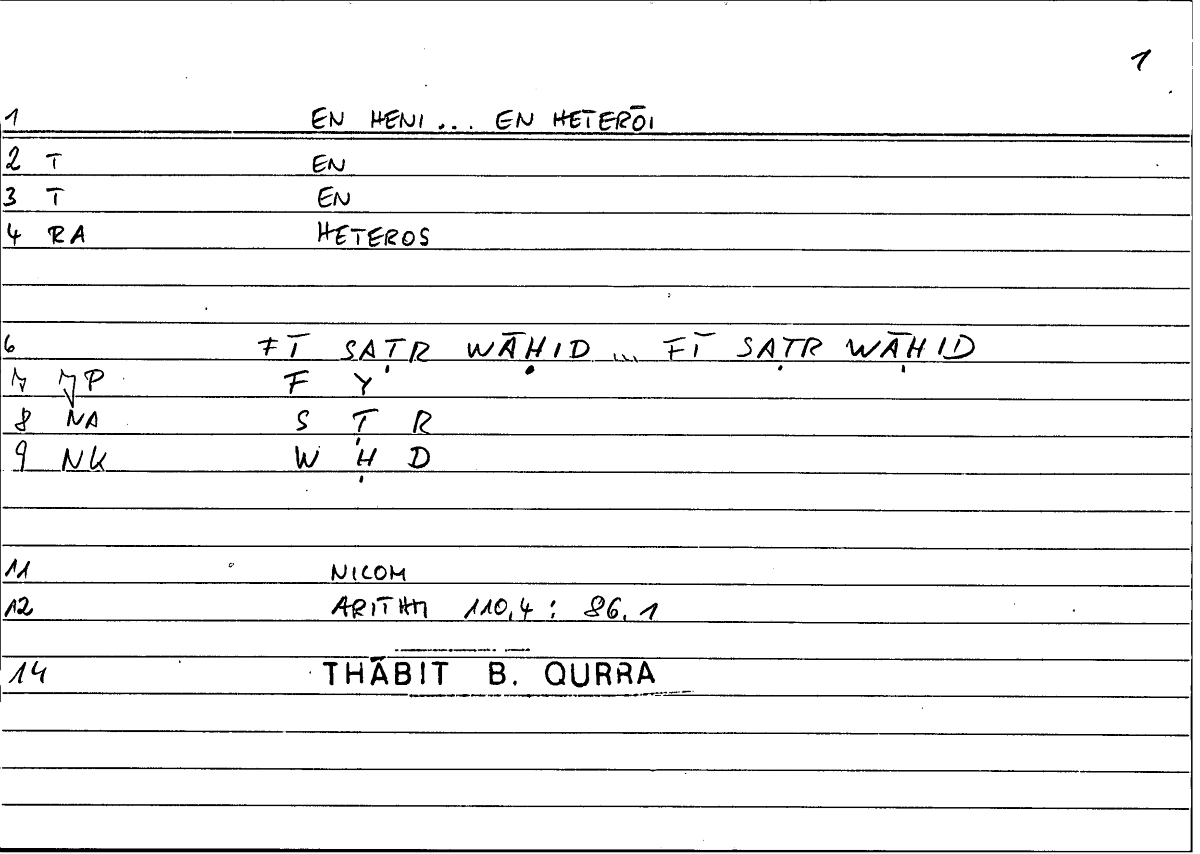 1
1 EN HENI ... EN HETERŌI
2 T EN
3 T EN
4 RA HETEROS
6 FĪ SAṬR WĀḤID ... FĪ SAṬR WĀḤID
7 P F Y
8 NA S Ṭ R
9 NK W Ḥ D
11 NICOM
12 ARITHM 110,4 : 86,1
14 THĀBIT B. QURRA